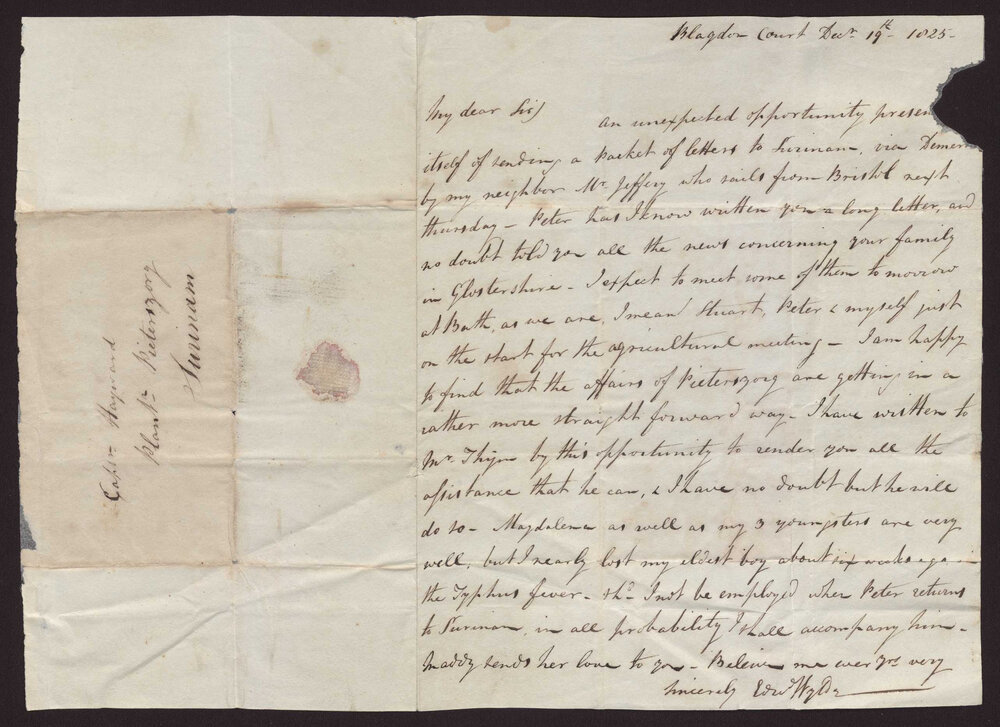 Blagdon Court Decr 19th 1825-
My dear Sir) an unexpected opportunity presen
itself of sending a packet of letters to Surinam, via Demer
by my neighbor Mr Jeffery who sails from Bristol next
thursday - Peter has I know written you a long letter, and
no doubt told you all the news concerning your family
in Glostershire - I expect to meet some of them tomorrow
at Bath, as we are, I mean Stuart, Peter & myself just
on the start for the agricultural meeting - I am happy
to find that the affairs of Pieterszorg are getting in a
rather more straight forward way - I have written to
Mr by this opportunity to render you all the
assistance that he can, & I have no doubt but he will
do so - Magdalena as well as my 3 youngsters are very
well, but I nearly lost my eldest boy about six weeks ago in
the Typhus fever - shd I not be employed when Peter returns
to Surinam, in all probability I shall accompany him -
Maddy sends her love to you - Believe me ever yrs very
sincerely Edwd Wylde
Captn Hayward
Plantn Pieterszorg
Surinam